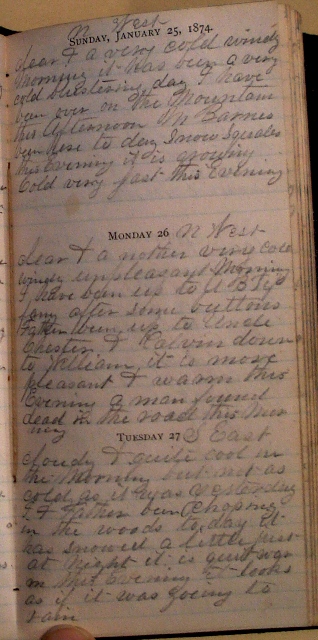 N West
SUNDAY, JANUARY 25, 1874.
clear & a very cold windy
morning it has been a very
cold blustering day I have
been over on the Mountain
this Afternoon M Barnes
been here to day Snow Squales
this Evening it is growing
Cold very fast this Evening
MONDAY 26 N West
clear & a nother very cold
windy unpleasant Morning
I have been up to
after some buttons
Father been up to Uncle
Chester & Calvin down
to William it is more
pleasant & warm this
Evening a man found
dead in the road this Mor
ning
TUESDAY 27 S East
cloudy & quite cool in
the Morning but not as
cold as it was yesterday
I & Father been Choping
in the woods to day it
has snowed a little just
at night it is quite war
m this Evening & looks
as if it was going to
rain